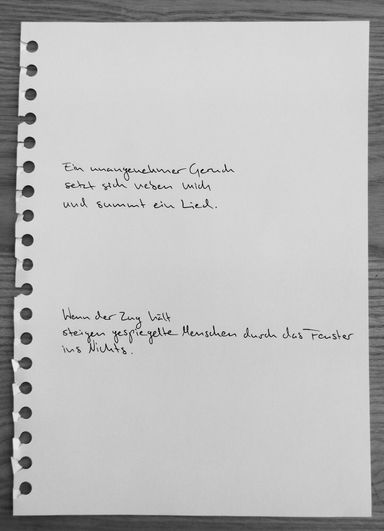 Ein unangenehmer Geruch
setzt sich neben mich
und summt ein Lied.
Wenn der Zug hält
steigen gespiegelte Menschen durch das Fenster
ins Nichts.